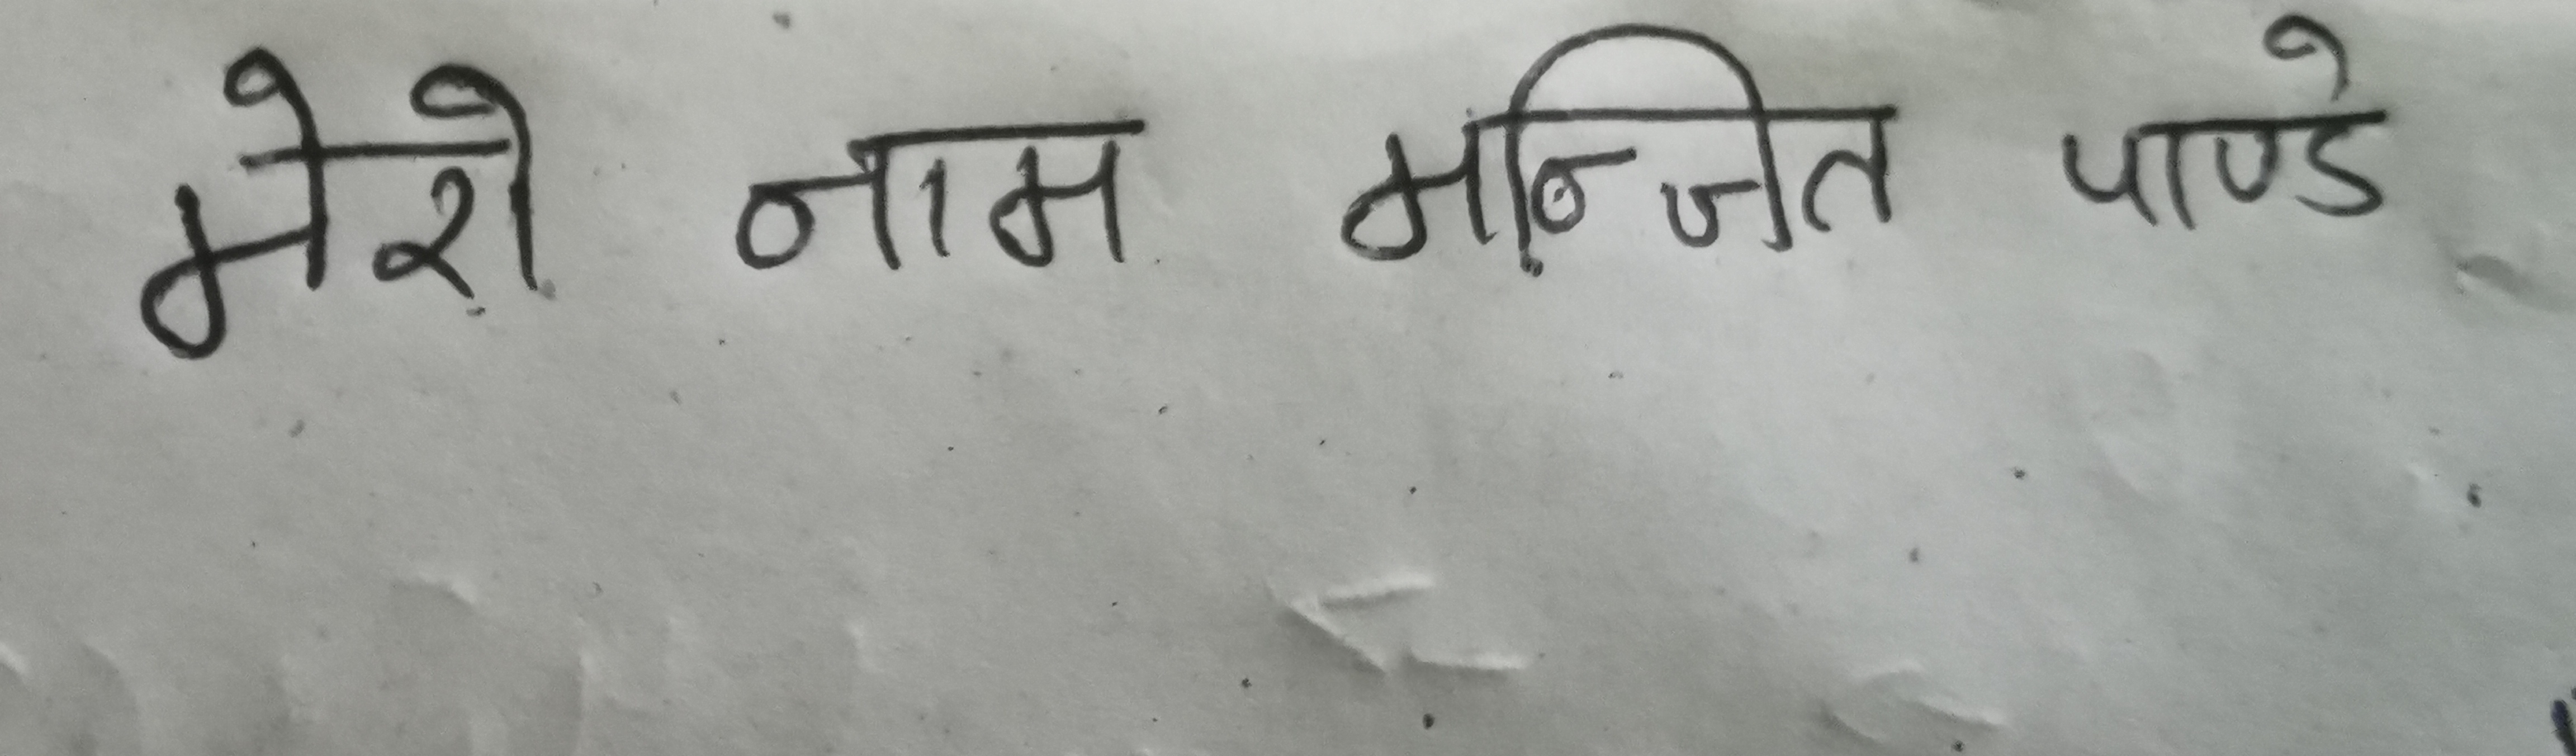 मेरो नाम मन्जित पाण्डे